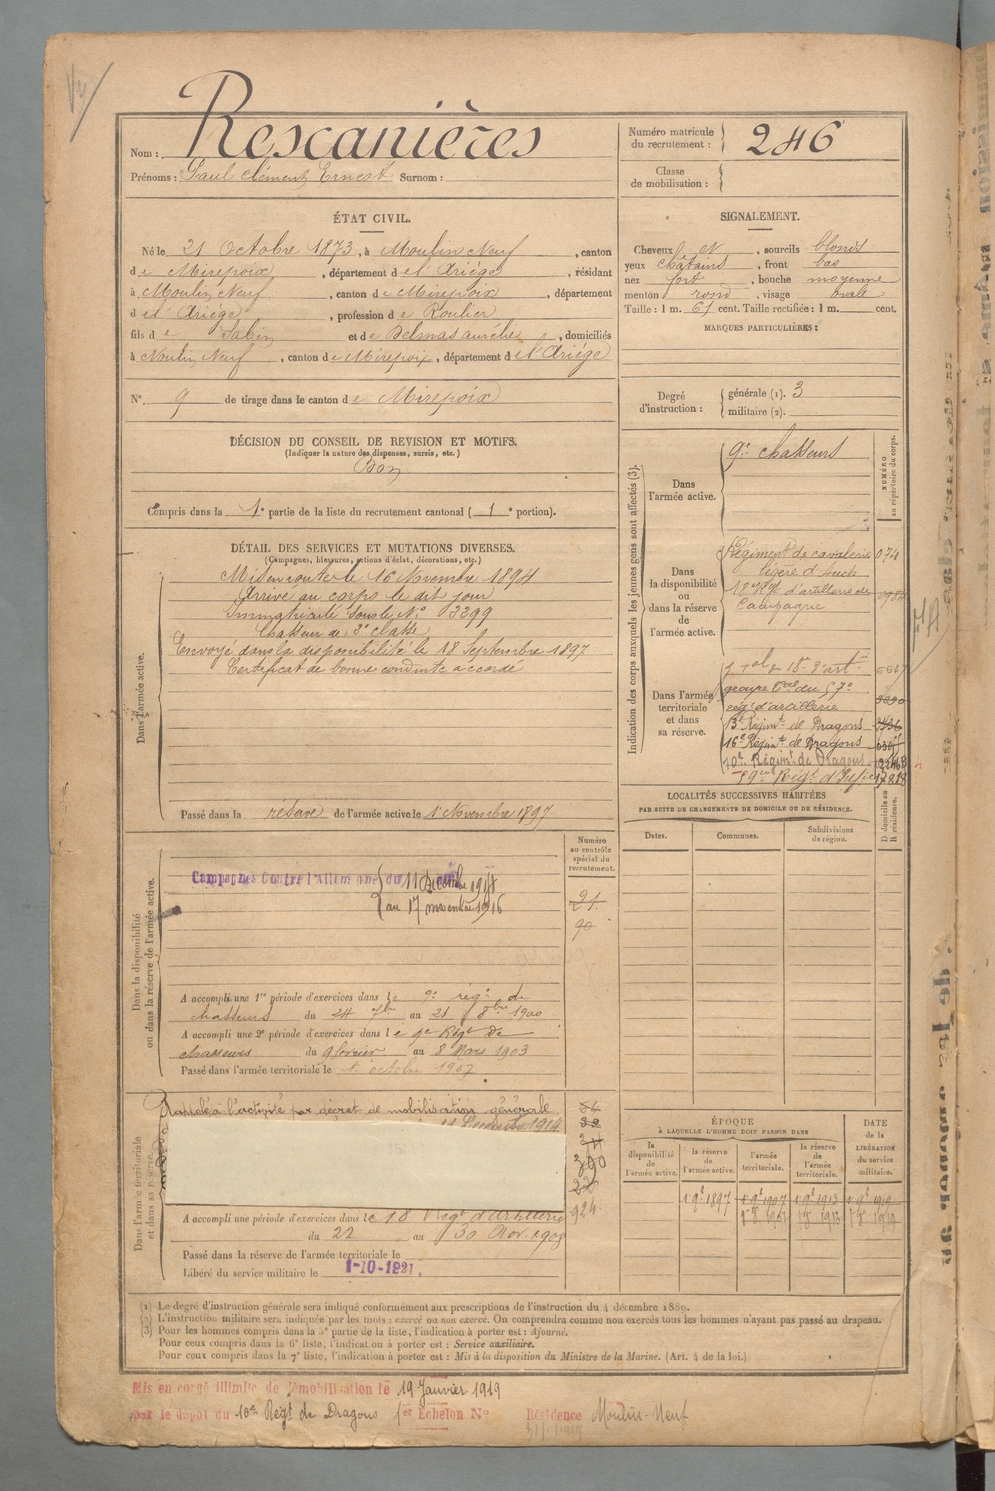 Rescanières
Nom :
Prénoms : Paul Clément Ernest Surnom :
Numéro matricule du recrutement : 246
Classe de mobilisation :
ÉTAT CIVIL.
Né le 21 Octobre 1873, à Moulin Neuf, canton
de Mirepoix, département de l'Ariége, résidant
à Moulin Neuf, canton de Mirepoix, département
d el' Ariége, profession de Roulier
fils de Sabin et de Delmas aurélie, domiciliés
à Moulin Neuf, canton de Mirepoix, département de l'Ariége
N° 9 de tirage dans le canton de Mirepoix
SIGNALEMENT.
Cheveux et, sourcils blonds
yeux châtains, front bas
nez fort, bouche moyenne
menton rond, visage ovale
Taille : 1 m. 67 cent. Taille rectifiée : 1 m. cent.
MARQUES PARTICULIÈRES :
Degré d'instruction : générale (1). 3
militaire (2).
DÉCISION DU CONSEIL DE REVISION ET MOTIFS.
(Indiquer la nature des dispenses, sursis, etc.)
Bon
Compris dans la 1e partie de la liste du recrutement cantonal (1e portion).
DÉTAIL DES SERVICES ET MUTATIONS DIVERSES.
(Campagnes, blessures, actions d'éclat, décorations, etc.)
Dans l'armée active.
Mis en route le 16 Novembre 1894
Arrivé au corps le dit jour
Immatriculé sous le N° 3299
Chasseur de 2e classe
Envoyé dans la disponibilité le 18 Septembre 1897
Certificat de bonne conduite accordé
Passé dans la réserve de l'armée active le 1er Novembre 1897
Indication des corps auxquels les jeunes gens sont affectés (3).
NUMÉRO au répertoire du corps.
Dans l'armée active.
9e chasseurs
Dans la disponibilité ou dans la réserve de l'armée active.
Régiment de cavalerie 074
légère d'Auch
18e Régt d'artillerie de
Campagne
Dans l'armée territoriale et dans sa réserve.
groupe tal du 57e
rég. d'artillerie
13e Régimt de Dragons
16e Régimt de Dragons
10e Régimt de Dragons
LOCALITÉS SUCCESSIVES HABITÉES
PAR SUITE DE CHANGEMENTS DE DOMICILE OU DE RÉSIDENCE.
Dates. Communes. Subdivisions de région. D domicile ou R résidence.
Dans la disponibilité ou dans la réserve de l'armée active.
Numéro au contrôle spécial du recrutement.
Campagnes Contre l'Allemagne du 11 Décembre 1914
au 17 novembre 1916
21
90
A accompli une 1re période d'exercices dans le 9e régt de
chasseurs du 24 7bre au 21 8bre 1900
A accompli une 2e période d'exercices dans le 9e Régt de
chasseurs du 9 février au 8 Mars 1903
Passé dans l'armée territoriale le 1er octobre 1907
Dans l'armée territoriale et dans sa réserve.
Rappelé à l'activité par décret de mobilisation générale
11 Décembre 1914
924
A accompli une période d'exercices dans le 18 Régt d'Artillerie
du 22 au 30 Nov. 1908
Passé dans la réserve de l'armée territoriale le
Libéré du service militaire le 1-10-1921.
ÉPOQUE
A LAQUELLE L'HOMME DOIT PASSER DANS
la disponibilité de l'armée active.
la réserve de l'armée active.
l'armée territoriale.
la réserve de l'armée territoriale.
DATE de la LIBÉRATION du service militaire.
(1) Le degré d'instruction générale sera indiqué conformément aux prescriptions de l'instruction du 4 décembre 1889.
(2) L'instruction militaire sera indiquée par les mots : exercé ou non exercé. On comprendra comme non exercés tous les hommes n'ayant pas passé au drapeau.
(3) Pour les hommes compris dans la 3e partie de la liste, l'indication à porter est : Ajourné.
Pour ceux compris dans la 6e liste, l'indication à porter est : Service auxiliaire.
Pour ceux compris dans la 7e liste, l'indication à porter est : Mis à la disposition du Ministre de la Marine. (Art. 4 de la loi.).
Mis en congé illimité de démobilisation le 19 Janvier 1919
par le dépôt du 10e Régt de Dragons 1er Echelon N° Résidence Moulin-Neuf